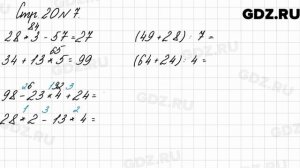 GDZ.RU
Стр. 20 N 7
84
28 * 3 - 57 = 27
(49 + 28) : 7 =
65
34 + 13 * 5 = 99
(64 + 24) : 4 =
98 - 23 * 4 + 24 =
1 3 2
28 * 2 - 13 * 4 =